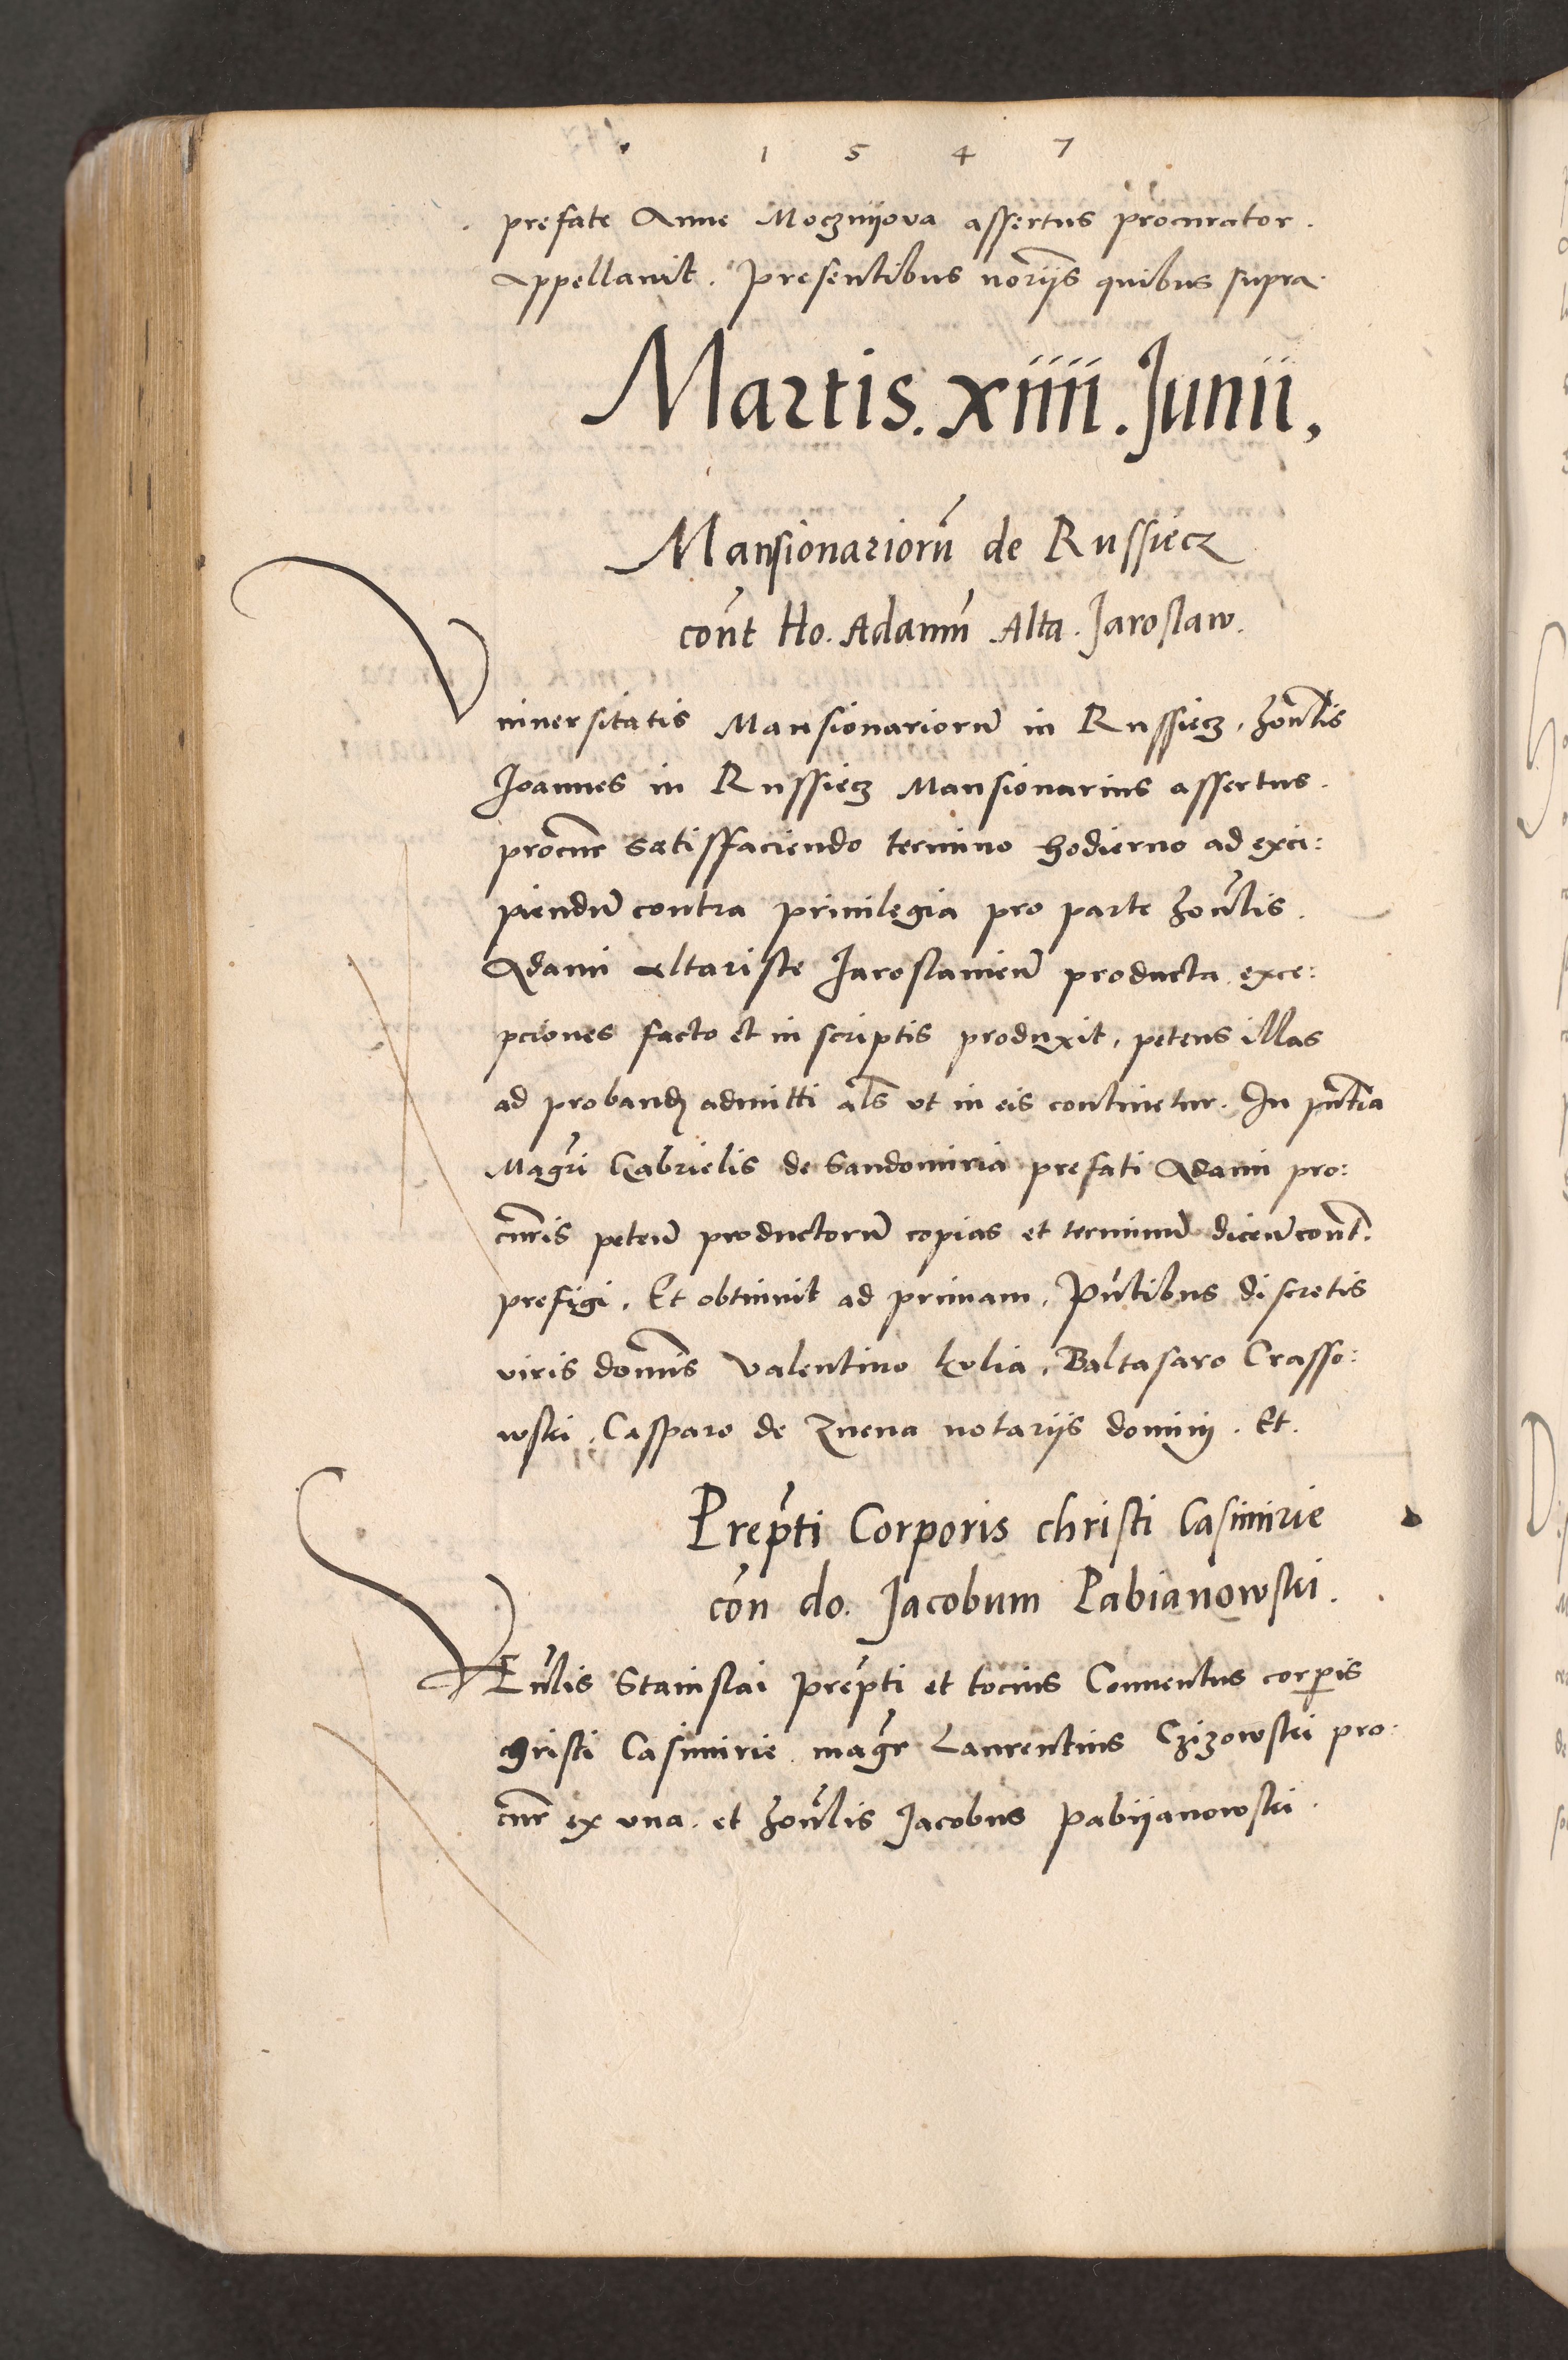 1 5 4 7
prefate Anne Moczniiova assertus procurator.
Appellavit. Presentibus norijs quibus supra.
Martis. xiiii. Junii,
Mansionariorū de Russiecz
cont Ho. Adamū Alta. Jaroslaw.
Vniuersitatis Mansionariorū in Russiecz, honlis
Joannes in Russiecz Mansionarius assertus.
procur satisfaciendo termino hodierno ad exci:
piendū contra priuilegia pro parte honlis.
Adami altariste Jaroslauieñ producta exce:
pciones facto et in scriptis produxit, petens illas
ad proband admitti als vt in eis continetur. In pntia
Magri Gabrielis de Sandomiria prefati Adami pro:
curis peteñ productorū copias et terminū diceñ cont.
prefigi. Et obtinuit ad primam. Pntibus discretis
viris domis Valentino kulia, Baltasaro Crasso:
wski, Casparo de Znena notarijs dominj. Et.
Prepti Corporis christi Casimirie
con do. Jacobum Pabianowski.
VEnlis Stanislai prepti et tocius Conuentus corpis
christi Casimirie magr Laurentius Czizowski pro:
cur ex vna. et honlis Jacobus Pabiianowski.